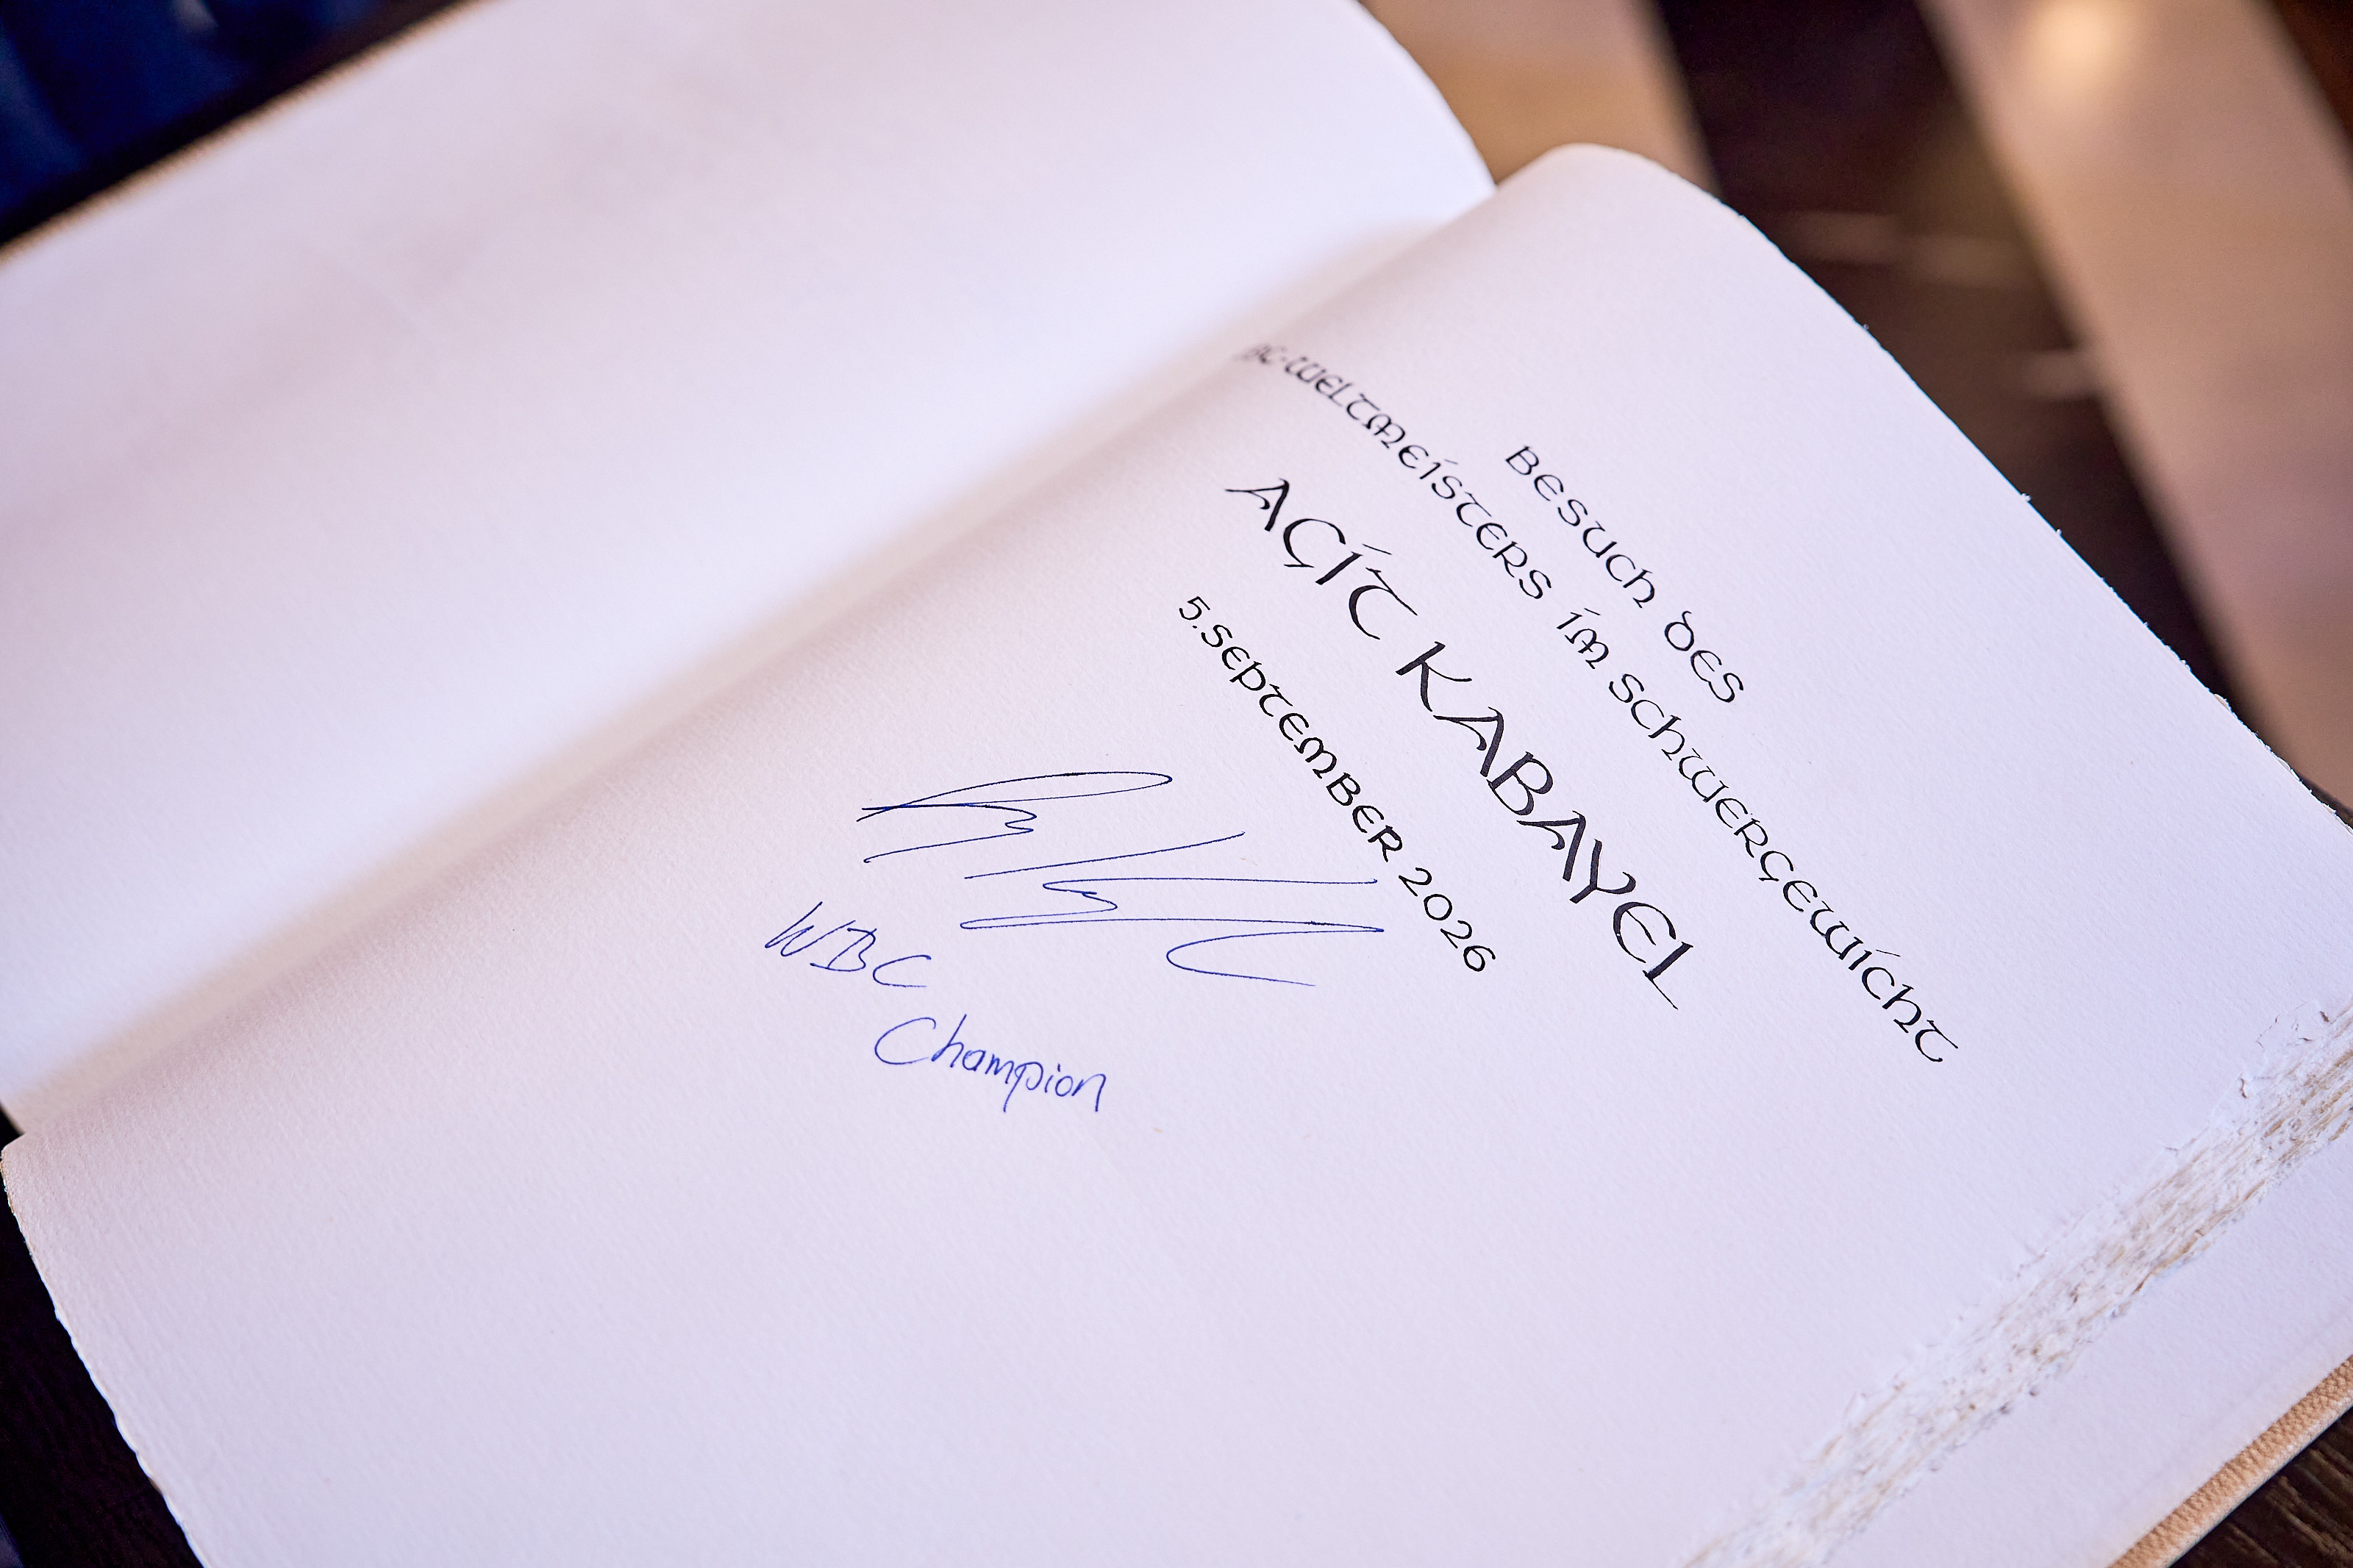 BESUCH DES
BC-WELTMEISTERS IM SCHWERGEWICHT
AGIT KABAYEL
5. SEPTEMBER 2026
WBC
Champion